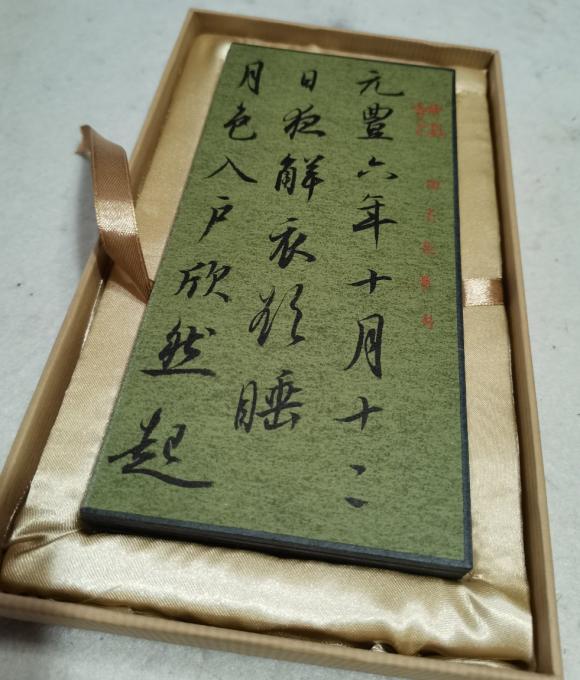 元豐六年十月十二
日夜解衣欲睡
月色入戶欣然起